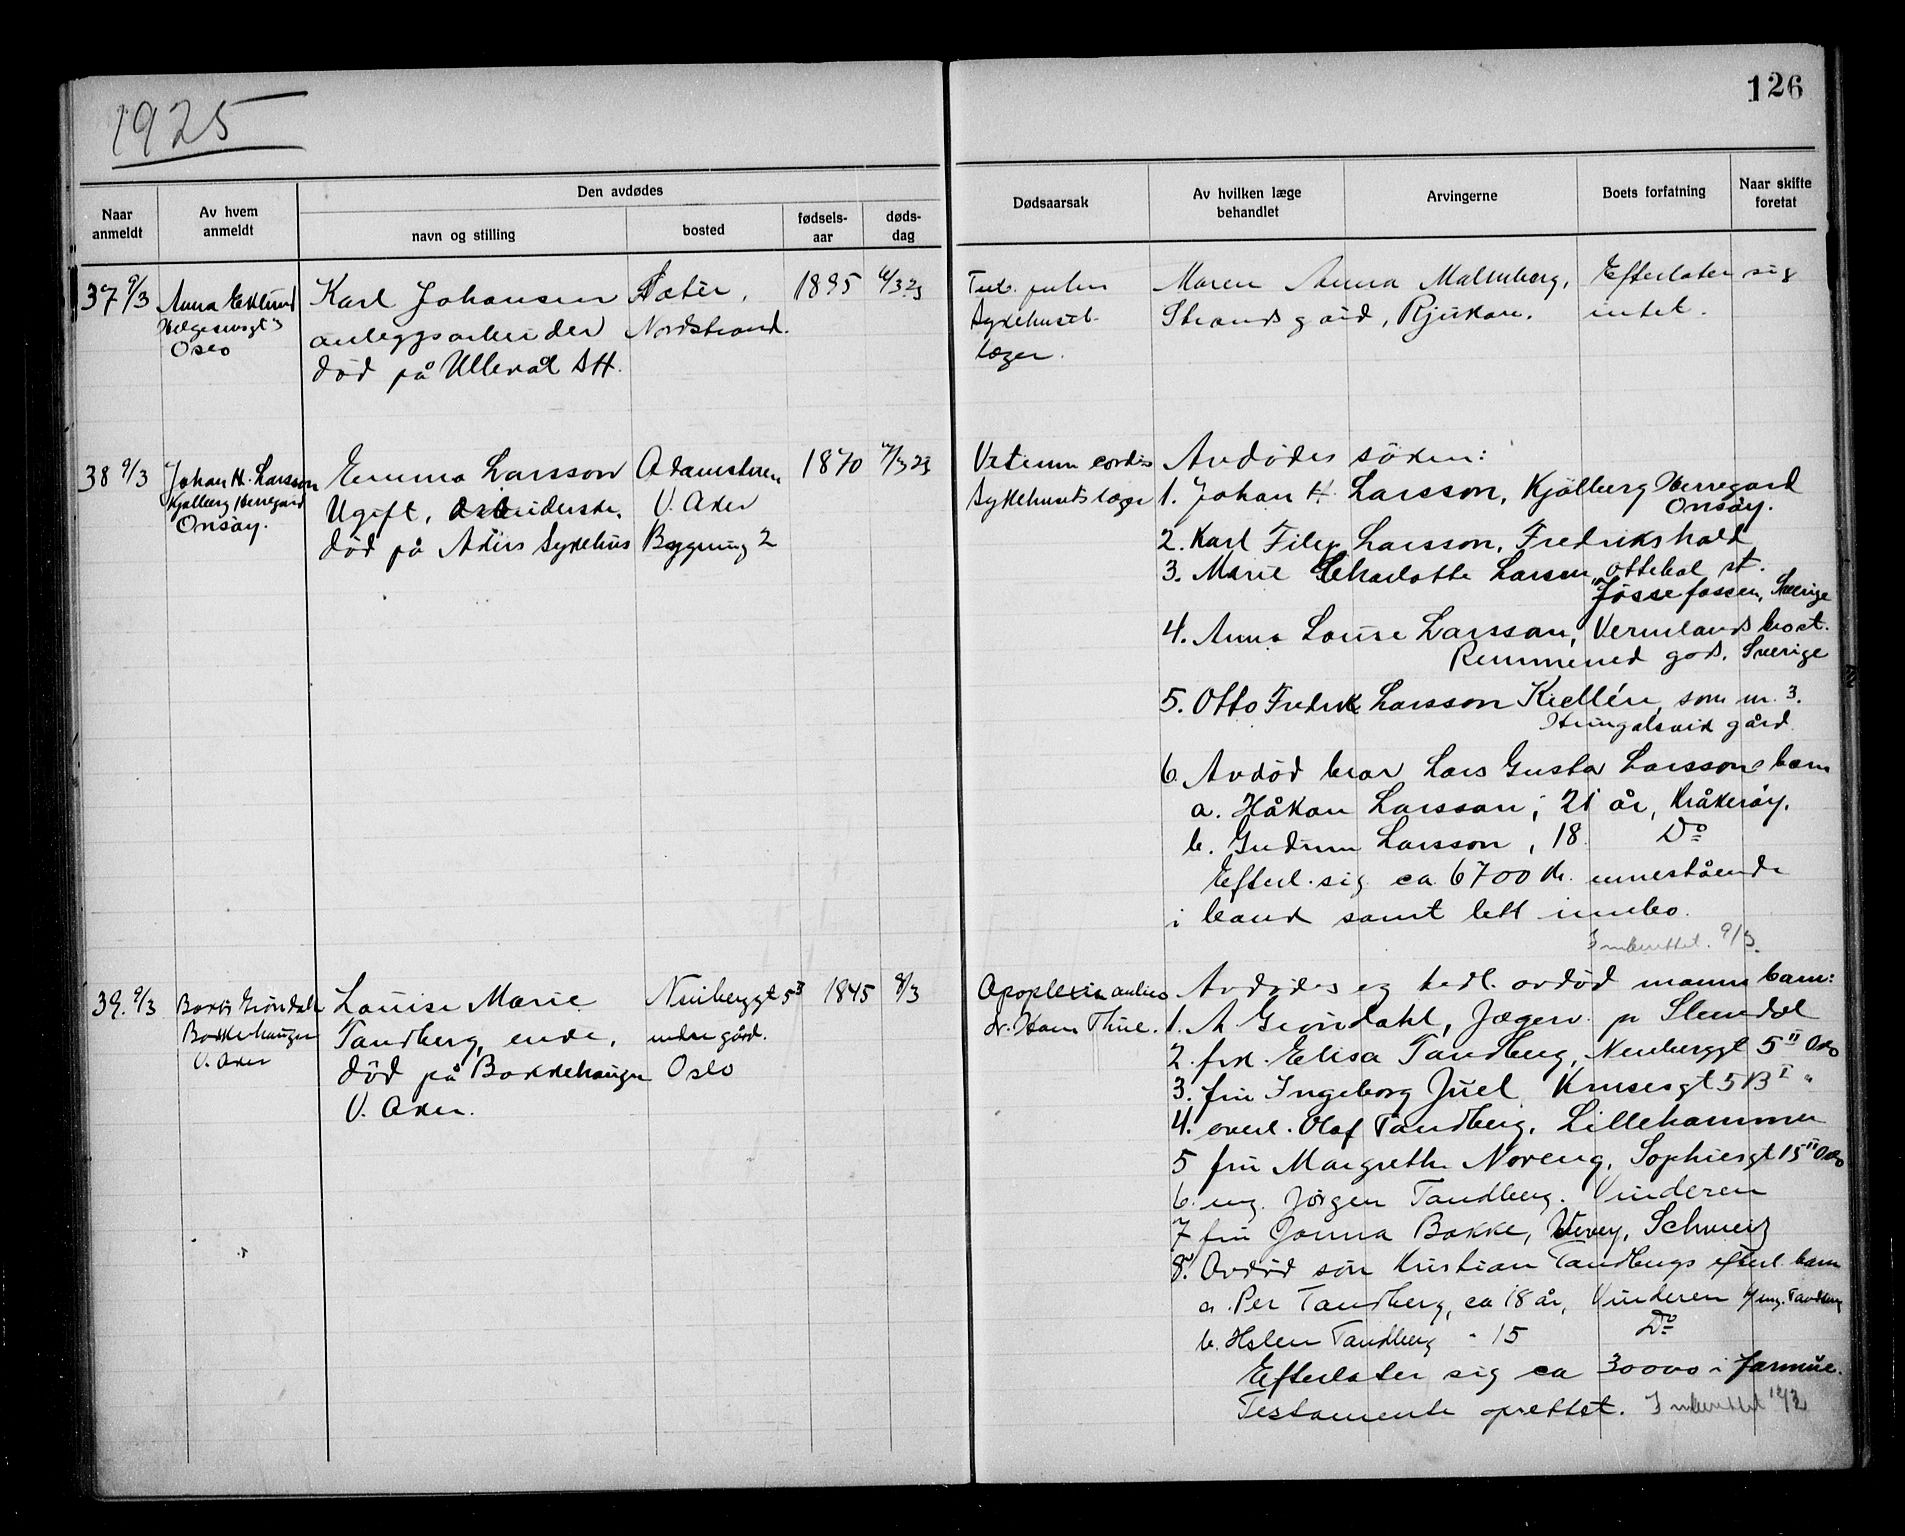 1925
126
Den avdødes
Naar anmeldt
Av hvem anmeldt
navn og stilling
bosted
fødsels-aar
døds-dag
Dødsaarsak
Av hvilken læge behandlet
Arvingerne
Boets forfatning
Naar skifte foretat
37 9/3
Anna Eklund
Oslo
Karl Johansen
anleggsarbeider
død på Ullevål SH.
Sæter,
Nordstrand.
1895
Tub. pulm
Sykehuset
læger.
Maren Anna Malmberg,
Strandsgård, Rjukan.
Efterlater sig
intet.
38 9/3
Johan H. Larsson
Kjølberg Herregård
Onsøy.
Emma Larsson
Ugift, arbeiderske,
død på Akers sykehus
Adamstuen
V. Aker
Bygning 2
1870
Vitium cordis
Sykehusets læger
Avdødes søken:
1. Johan H. Larsson, Kjølberg Herregård
Onsøy.
2. Karl Filip Larsson, Fredrikshald
3. Marie Charlotte Larsen, ottebol st.
Jössefossen, Sverige
4. Anna Louise Larsson, Vermlands bro st.
gods, Sverige
5. Otto Fredrik Larsson Kiellén, som nr. 3.
gård
6. Avdød bror Lars Gustav Larssons barn
a. Håkon Larsson, 21 år, Kråkerøy.
b. Gudrun Larsson, 18 Do
Efterl. sig ca 6700 kr. innestående
i bank samt litt innbo.
Innberettet. 9/3.
39. 9/3
Borti Grøndahl
Bakkehaugen
V. Aker
Louise Marie
Tandberg, enke,
død på Bakkehaugen
V. Aker.
Neuberggt 5
nedre gård.
Oslo
1845
8/3
Apoplexia
dr. Hans Thue.
Avdødes og tidl. avdød manns barn:
1. A Grøndahl, Jægerv. pr Slemdal
2. frk. Elisa Tandberg, Neuberggt 5 II Oslo
3. fru Ingeborg Juel, Krusesgt 5 B I "
4. overl. Olaf Tandberg, Lillehammer
5 fru Margrethe Noreng, Sophiesgt 15 II Oslo
6. ing. Jørgen Tandberg. Vinderen
7 fru Jonna Bakke, Vevey, Schweiz
8. Avdød søn Kristian Tandbergs efterl. barn
a. Per Tandberg, ca 18 år, Vinderen ing. Tandberg
b. Helen Tandberg " 15 Do
Efterlater sig ca 30000 i formue.
Testamente oprettet. Innberettet 12/3